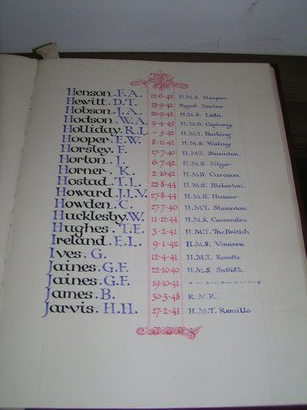 Henson . F.A. 12-6-41
Hewitt . D.T. Royal Marine
Hobson . J.A. H.M.S. Leda
Hodson . W.A. 9-4-43 H.M.S.
Holliday . R.L. H.M.T. Barking
Hooper . F.W. 8-11-42 H.M.S. Walney
Horsley . F. 27-7-40 H.M.T. Staunton
Horton . J. 6-7-42 H.M.S. Niger
Horner . K. 2-10-42 H.M.S. Curacoa
Hostad . T.L. 22-8-44 H.M.S. Bickerton
Howard . J.J.W. 27-8-44 H.M.S. Hussar
Howden . C. 27-7-40 H.M.T. Staunton
Hucklesby . W. 11-12-44 H.M.S. Cassandra
Hughes . T.E. 3-2-41 H.M.T. The British
Ireland . E.L. 9-1-42 H.M.S. Vimiera
Ives . G. 12-4-41 H.M.T. Rosetta
Jaines . G.F. 22-10-40 H.M.S. Suffolk
Jaines . G.F. 19-10-41
James . B. 30-3-48 R.N.R.
Jarvis . H.H. 27-2-41 H.M.T. Remillo